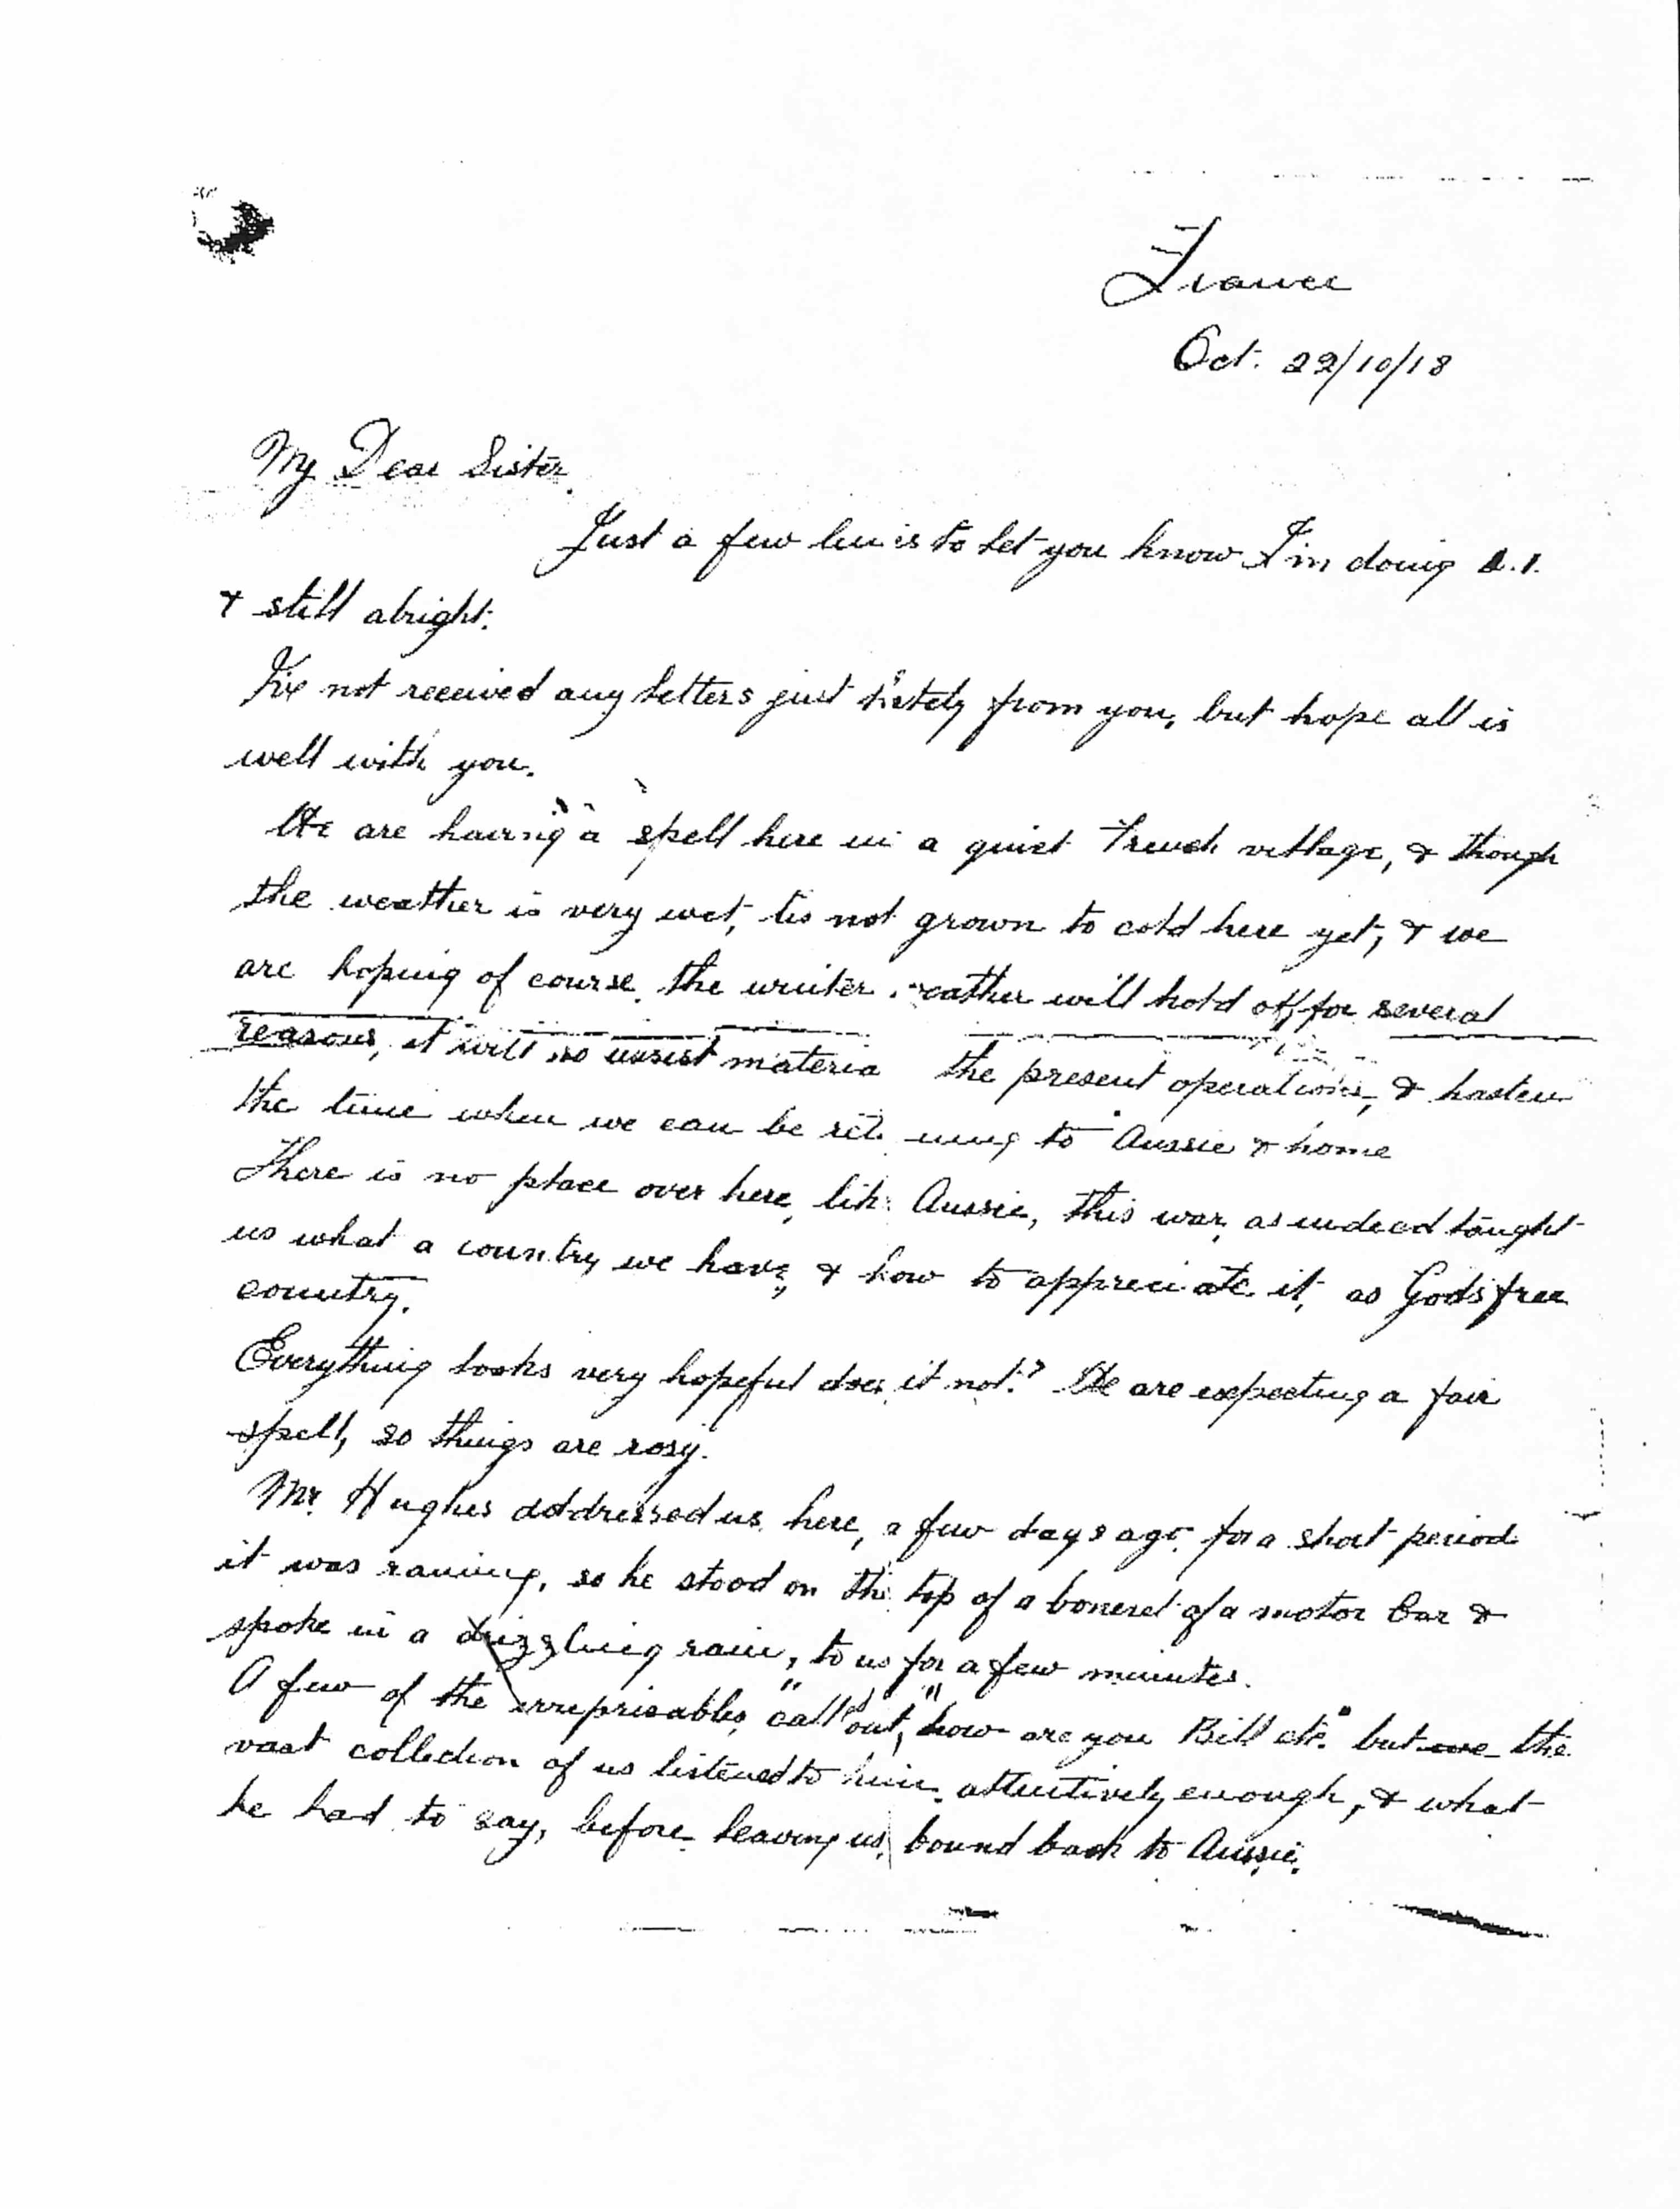 France
Oct. 22/10/18
My Dear Sister.
Just a few lines to let you know I'm doing A.1.
& still alright.
I've not received any letters just lately from you, but hope all is
well with you.
We are having a spell here in a quiet French village, & though
the weather is very wet, tis not grown to cold here yet, & we
are hoping of course, the winter weather will hold off for several
reasons, it will so assist materia the present operations, & hasten
the time when we can be to Aussie & home
There is no place over here, like Aussie, this war, as indeed taught
us what a country we have, & how to appreciate it, as Gods free
country.
Everything looks very hopeful does it not? We are expecting a fair
spell, so things are rosy.
Mr. Hughes addressed us, here, a few days ago, for a short period
it was raining, so he stood on the top of a bonnet of a motor Car &
spoke in a drizzling rain, to us for a few minutes.
A few of the irreprisables, "call out", "how are you Bill etc." but the
vast collection of us listened to him, attentively enough, & what
he had to say, before leaving us, bound back to Aussie.